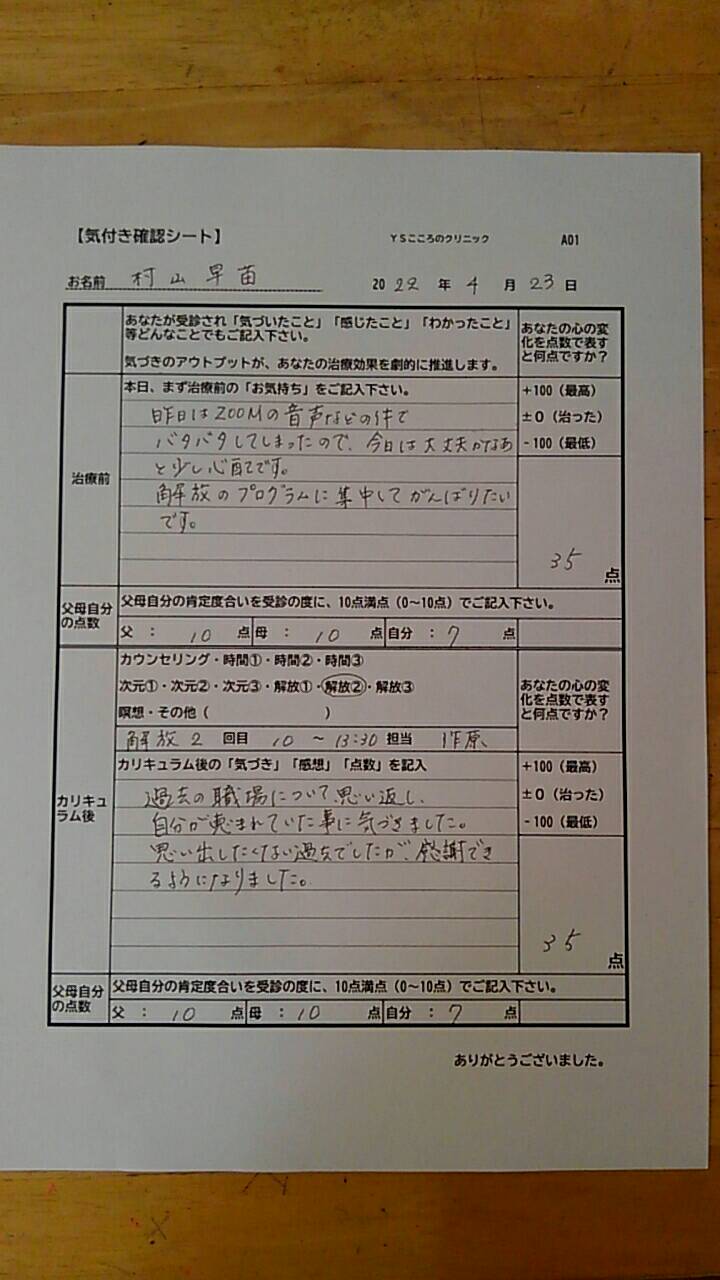 【気付き確認シート】 YSこころのクリニック A01
お名前 村山早苗 2022年4月23日
あなたが受診され「気づいたこと」「感じたこと」「わかったこと」
等どんなことでもご記入下さい。
気づきのアウトプットが、あなたの治療効果を劇的に推進します。
あなたの心の変
化を点数で表す
と何点ですか？
治療前
本日、まず治療前の「お気持ち」をご記入下さい。
昨日はZOOMの音声などの件で
バタバタしてしまったので、今日は大丈夫かなあ
と少し心配です。
解放のプログラムに集中してがんばりたい
です。
+100（最高）
±0（治った）
-100（最低）
35点
父母自分
の点数
父母自分の肯定度合いを受診の度に、10点満点（0～10点）でご記入下さい。
父：10点 母：10点 自分：7点
カリキュ
ラム後
カウンセリング・時間①・時間②・時間③
次元①・次元②・次元③・解放①・解放②・解放③
瞑想・その他（ ）
あなたの心の変
化を点数で表す
と何点ですか？
解放2 回目 10～13:30 担当 作原
カリキュラム後の「気づき」「感想」「点数」を記入
過去の職場について思い返し、
自分が恵まれていた事に気づきました。
思い出したくない過去でしたが、感謝でき
るようになりました。
+100（最高）
±0（治った）
-100（最低）
35点
父母自分
の点数
父母自分の肯定度合いを受診の度に、10点満点（0～10点）でご記入下さい。
父：10点 母：10点 自分：7点
ありがとうございました。